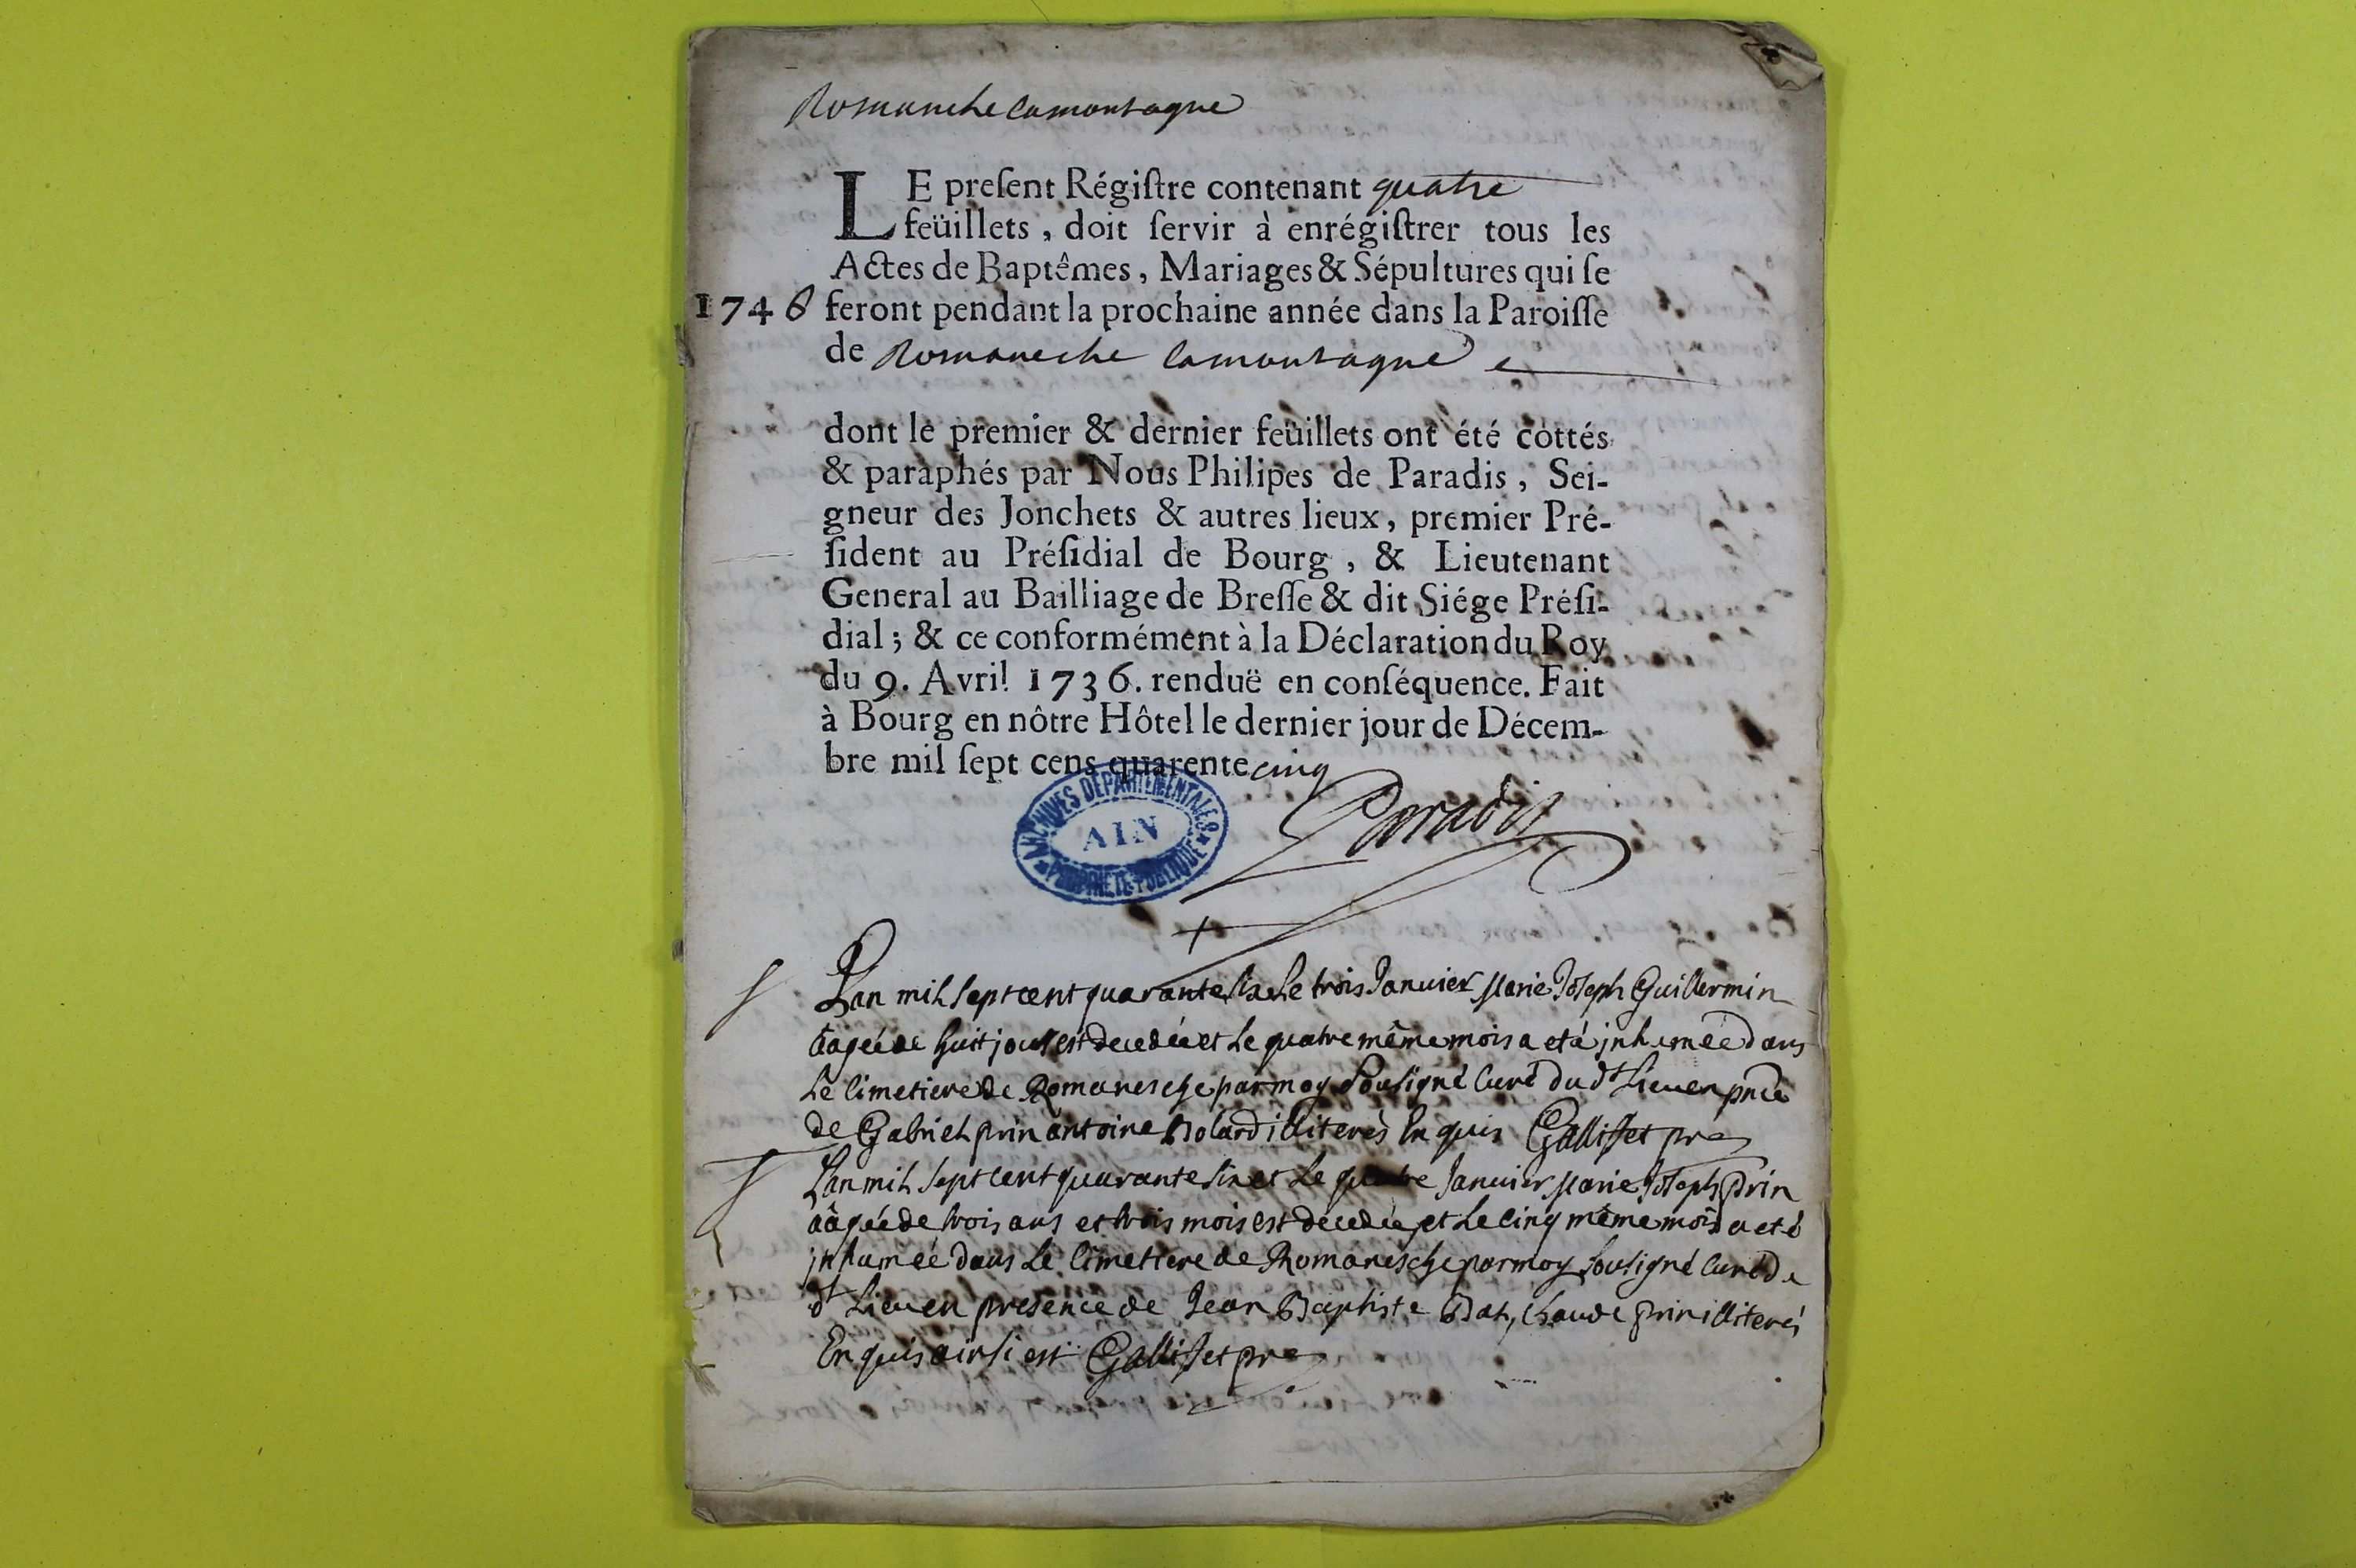 Romaneche lamontagne
LE preſent Régiſtre contenant quatre
feüillets, doit ſervir à enrégiſtrer tous les
Actes de Baptêmes, Mariages & Sépultures qui ſe
1746 feront pendant la prochaine année dans la Paroiſſe
de Romaneche lamontagne
dont le premier & dernier feüillets ont été cottés
& paraphés par Nous Philipes de Paradis, Sei-
gneur des Jonchets & autres lieux, premier Pré-
ſident au Préſidial de Bourg, & Lieutenant
General au Bailliage de Breſſe & dit Siége Préſi-
dial; & ce conformément à la Déclaration du Roy
du 9. Avril 1736. renduë en conſéquence. Fait
à Bourg en nôtre Hôtel le dernier jour de Décem-
bre mil ſept cens quarente cinq
ARCHIVES DÉPARTEMENTALES
AIN
PROPRIÉTÉ PUBLIQUE
Paradis
Lan mil sept cent quarante six et Le trois Janvier Marie Joseph Guillermin
aagée de huit jours est decedée et Le quatre même mois a eté jnhumée dans
Le Cimetiere de Romanesche par moy Sousigné Curé du dt Lieu en pnce
de Gabriel prin antoine Bolard illiterés Enquis Galliset pre
Lan mil sept cent quarante six et Le quatre Janvier Marie Joseph prin
aâgée de trois ans et trois mois est décedée et Le cinq même mois a eté
jnhumée dans Le Cimetiere de Romanesche par moy sousigné Curé du
dt Lieu en presence de Jean Baptiste Bat, Claude prin illiterés
Enquis ainsi est Galliset pre